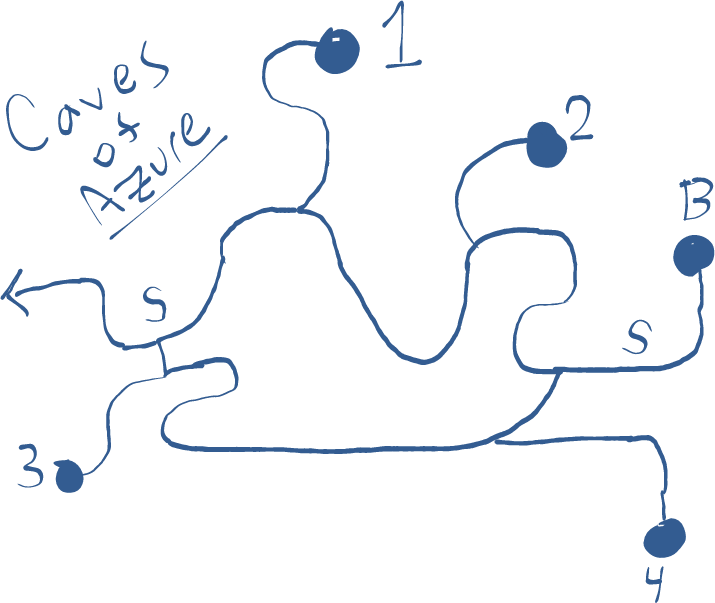 Caves
of
Azure
1
2
B
S
S
3
4